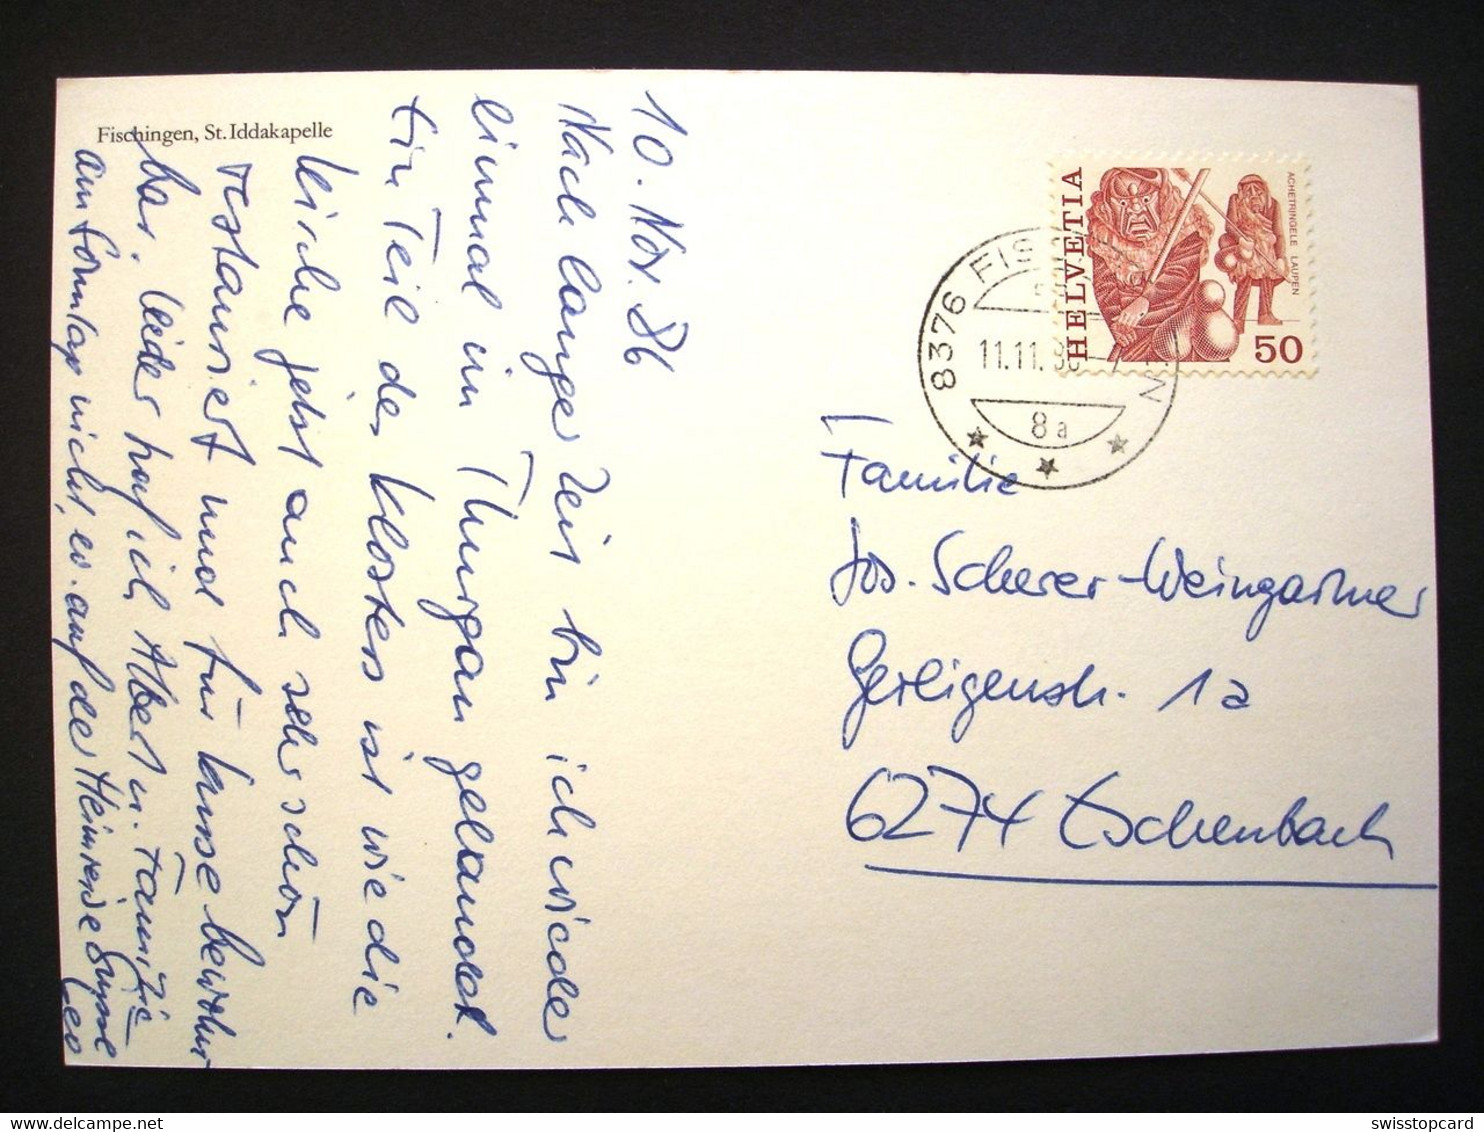 Fischingen, St. Iddakapelle
10. Nov. 86
Nach langer Zeit bin ich wieder
einmal im Thurgau gelandet.
Ein Teil des Klosters ist wie die
Kirche jetzt auch sehr schön
restauriert und für Kurse bewohn-
bar. Leider traf ich Albert u. Familie
am Sonntag nicht, ev. auf der Heimreise Grüsse
Leo
HELVETIA
ACHETRINGELE LAUPEN
50
8376 FISCHINGEN
11.11.86
8a
Familie
Jos. Scherer-Weingartner
Gerligenstr. 1a
6274 Eschenbach
swisstopcard